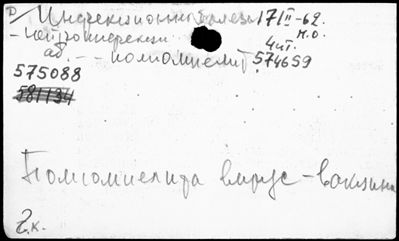 Инфекционные болезни 17/II-62.
- нейроинфекции м.о.
аб. - - полиомиелит 4 чит. 574659
575088
581134
Полиомиелита вирус - вакцина
2 к.